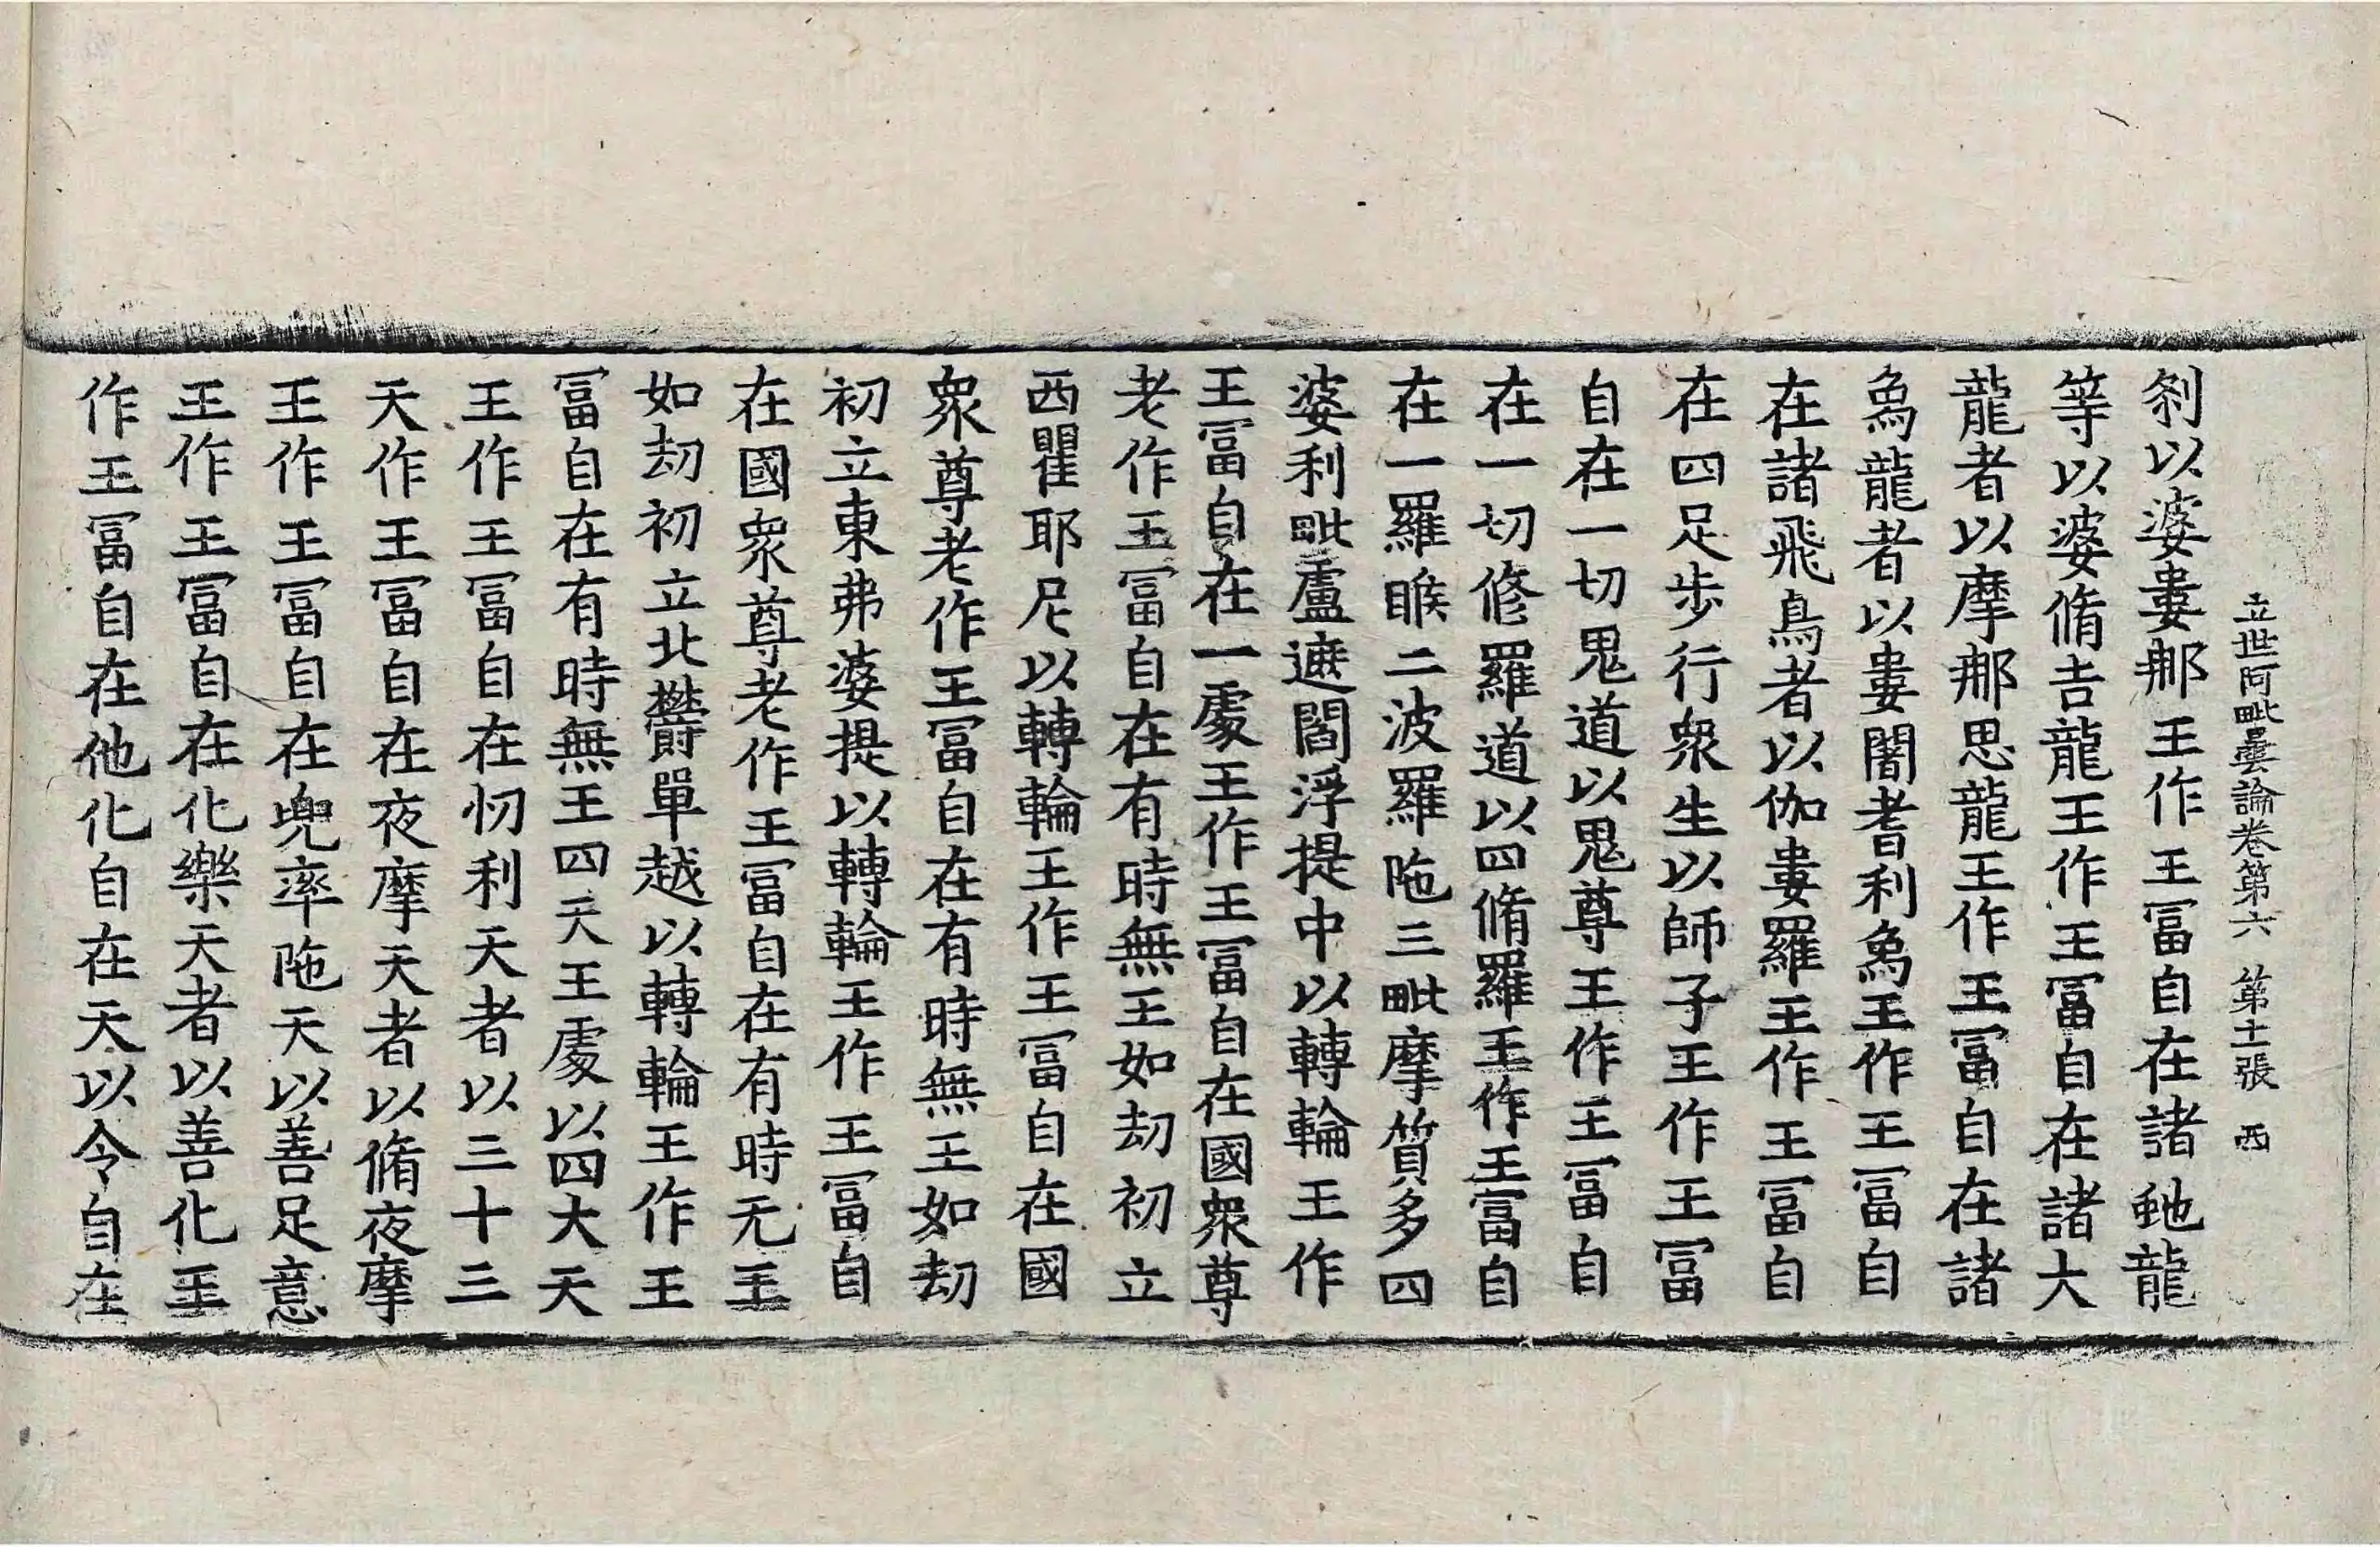 立世阿毗曇論卷第六 第十一張 西
刹以婆婁那王作王冨自在諸虵龍
等以婆脩吉龍王作王冨自在諸大
龍者以摩那思龍王作王冨自在諸
象龍者以婁闍耆利象王作王冨自
在諸飛鳥者以伽婁羅王作王冨自
在四足步行衆生以師子王作王冨
自在一切鬼道以鬼尊王作王冨自
在一切修羅道以四脩羅王作王冨自
在一羅睺二波羅陁三毗摩質多四
婆利毗盧遮閻浮提中以轉輪王作
王冨自在一處王作王冨自在國衆尊
老作王冨自在有時無王如劫初立
西瞿耶尼以轉輪王作王冨自在國
衆尊老作王冨自在有時無王如劫
初立東弗婆提以轉輪王作王冨自
在國衆尊老作王冨自在有時无王
如劫初立北欝單越以轉輪王作王
冨自在有時無王四天王處以四大天
王作王冨自在忉利天者以三十三
天作王冨自在夜摩天者以脩夜摩
王作王冨自在兜率陁天以善足意
王作王冨自在化樂天者以善化王
作王冨自在他化自在天以令自在